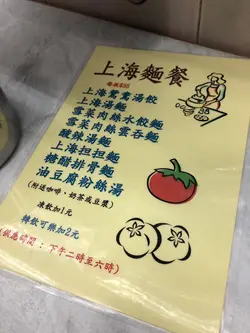 上海麵餐
每款$35
上海鴛鴦湯餃
上海湯麵
雪菜肉絲水餃麵
雪菜肉絲雲吞麵
酸辣湯麵
上海担担麵
糖醋排骨麵
油豆腐粉絲湯
(附送咖啡、奶茶或豆漿)
凍飲加1元
轉飲可樂加2元
(供應時間：下午二時至六時)